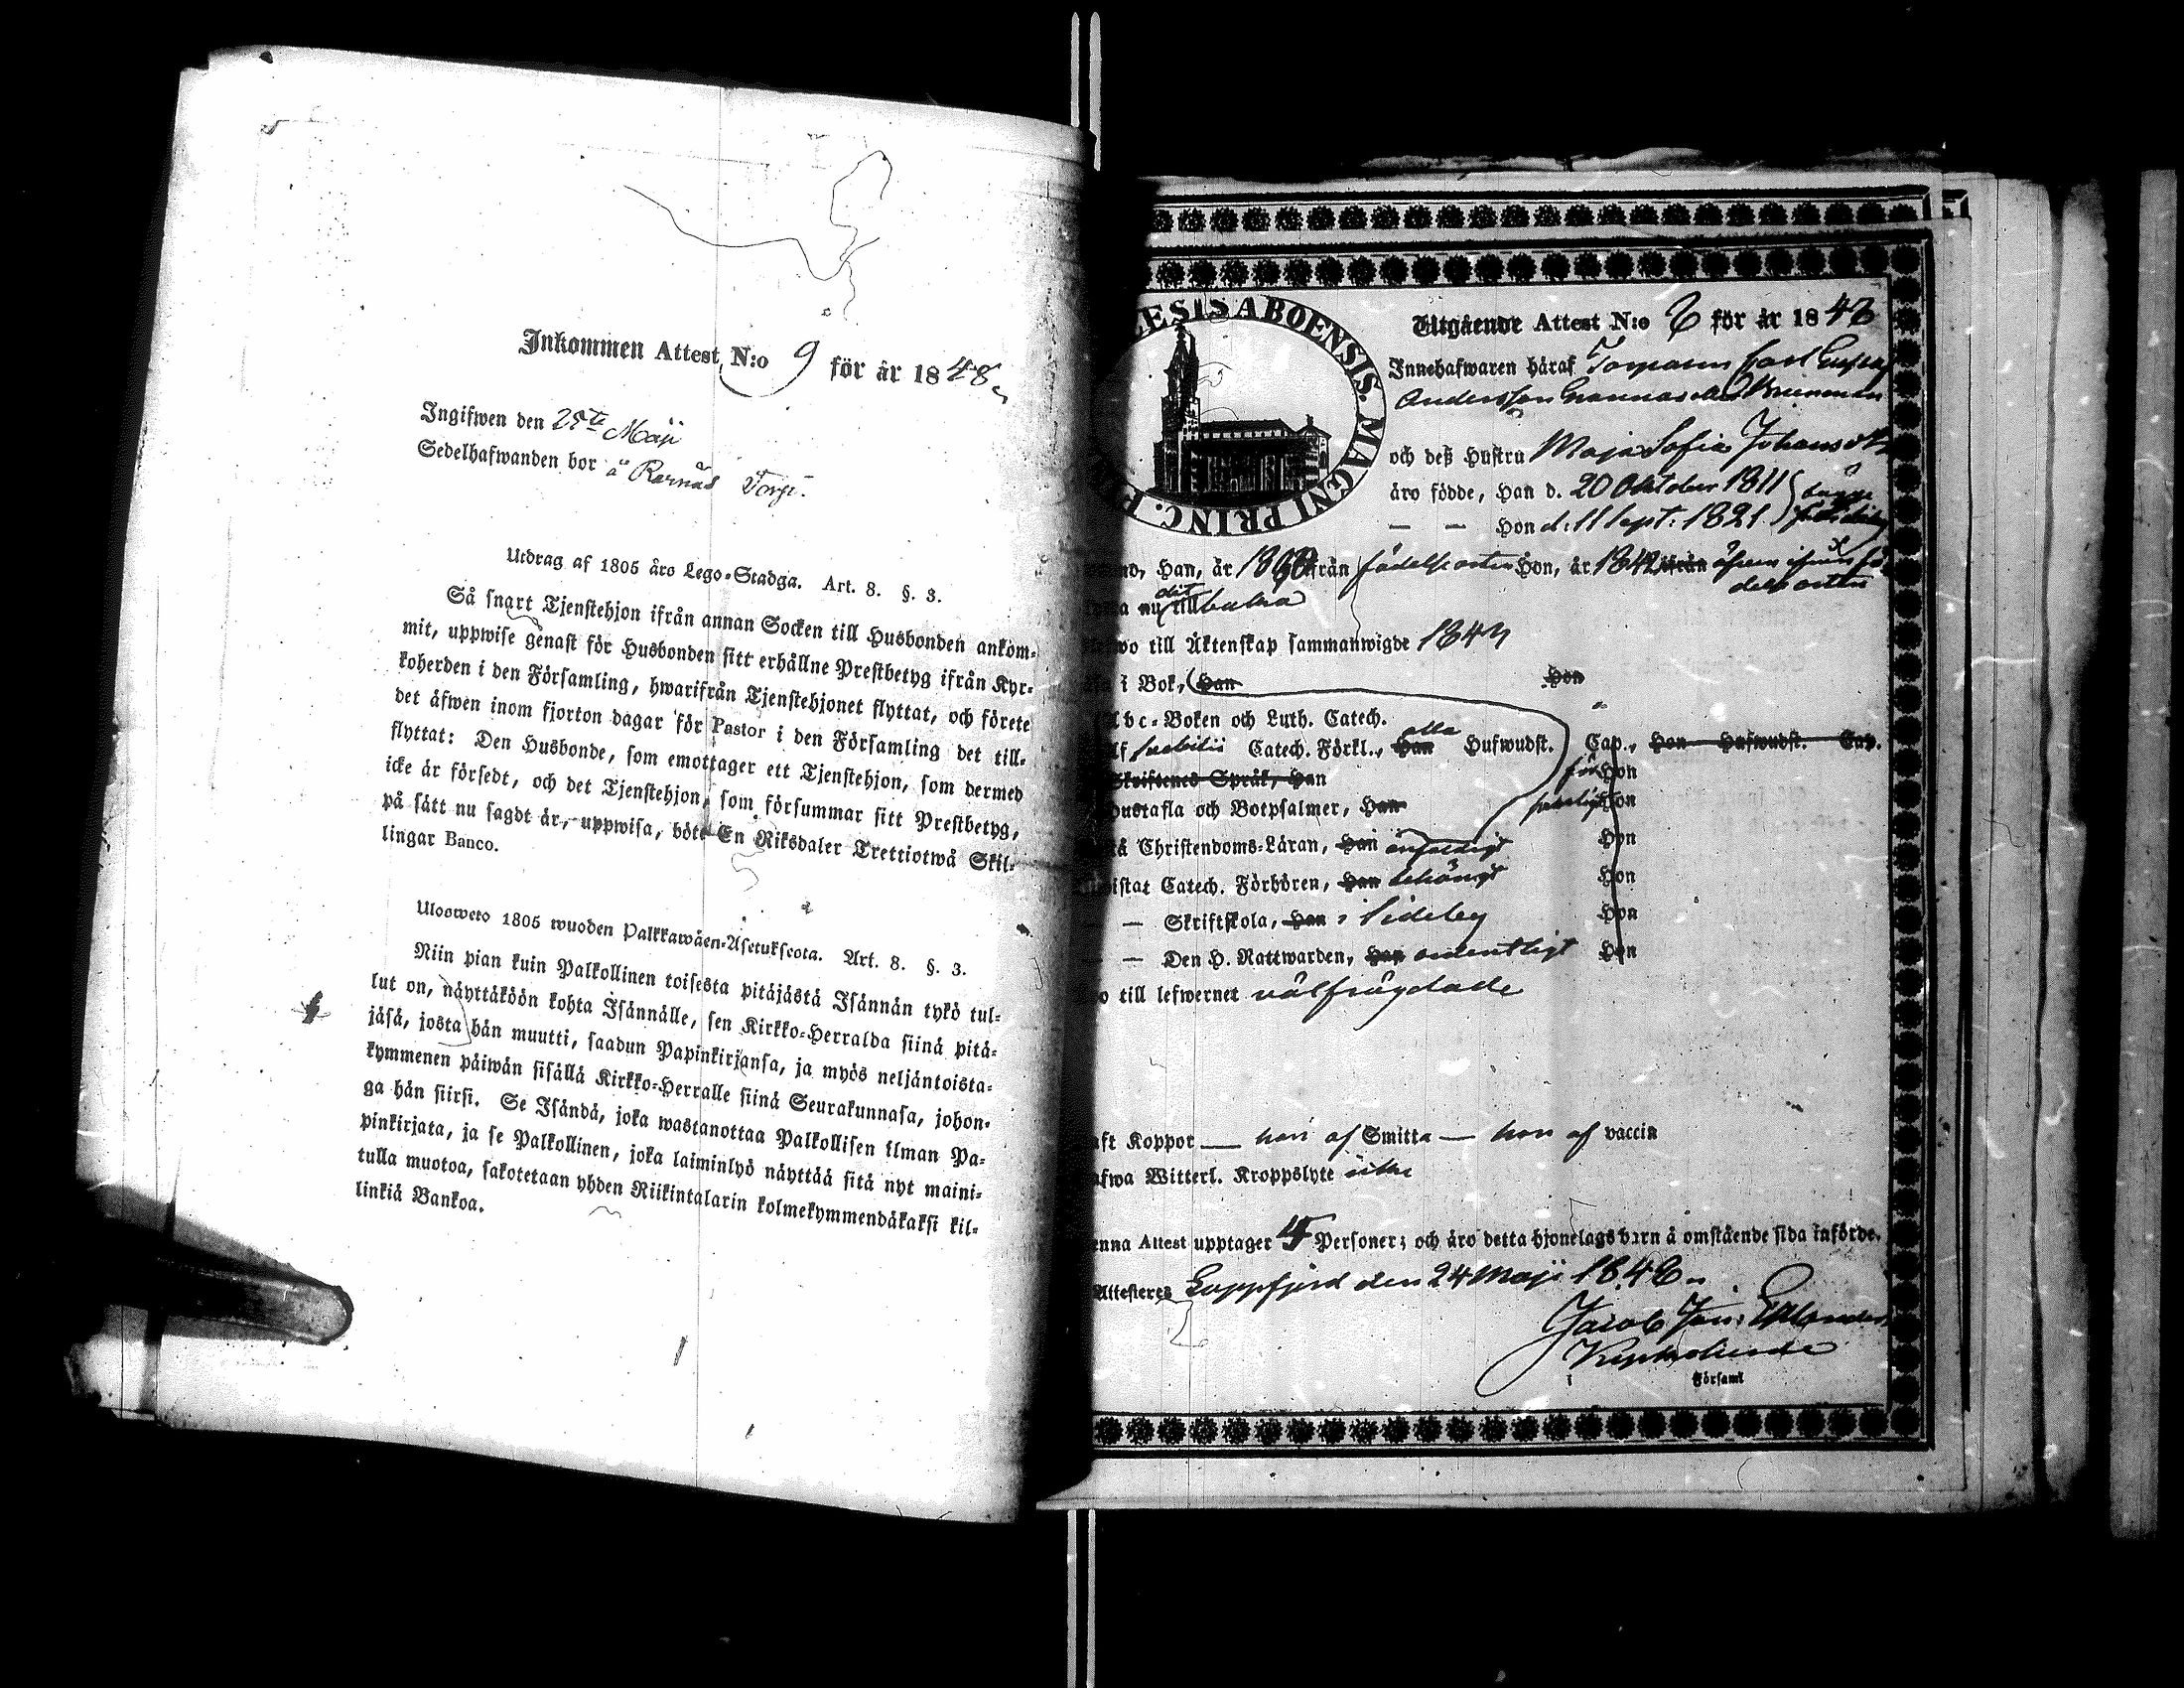 Inkommen Attest N:o 9 för år 1848
Ingifwen den 25te Maji
Sedelhafwanden bor å Rarnäs Torp.
Utdrag af 1805 års Lego-Stadga. Art. 8. §. 3.
Så snart Tjenstehjon ifrån annan Socken till Husbonden ankom-
mit, uppwise genast för Husbonden sitt erhållne Prestbetyg ifrån Kyr-
koherden i den Församling, hwarifrån Tjenstehjonet flyttat, och förete
det äfwen inom fjorton dagar för Pastor i den Församling det till-
flyttat: Den Husbonde, som emottager ett Tjenstehjon, som dermed
icke är försedt, och det Tjenstehjon, som försummar sitt Prestbetyg,
på sätt nu sagdt är, uppwisa, böte En Riksdaler Trettiotwå Skil-
lingar Banco.
Ulosweto 1805 wuoden Palkkawäen-Asetuksesta. Art. 8. §. 3.
Niin pian kuin Palkollinen toisesta pitäjästä Isännän tykö tul-
lut on, näyttäköön kohta Isännälle, sen Kirkko-Herralda siinä pitä-
jäsä, josta hän muutti, saadun Papinkirjansa, ja myös neljäntoista-
kymmenen päiwän sisällä Kirkko-Herralle siinä Seurakunnasa, johon-
ga hän siirsi. Se Isändä, joka wastanottaa Palkollisen ilman Pa-
pinkirjata, ja se Palkollinen, joka laiminlyö näyttää sitä nyt maini-
tulla muotoa, sakotetaan yhden Riikintalarin kolmekymmendäkaksi kil-
linkiä Bankoa.
ESIS ABOENSIS. MAGNI PRINC.
Utgående Attest N:o 6 för år 1848
Innehafwaren häraf Torparen Carl Gustaf
Andersson
och deß Hustru Maja Sofia Johansdr
äro födde, Han d. 20 Oktober 1811
— — Hon d. 11 Sept. 1821
Han, år från födelseorten Hon, år 1842 ifrån
delseorten
nu dit till baka
till Äktenskap sammanwigde 184
i Bok, Han Hon
Abc-Boken och Luth. Catech.
Svebilii Catech. Förkl., Han alla Hufwudst. Cap., Hon Hufwudst. Cap.
Skriftenes Språk, Han Hon
Hustafla och Botpsalmer, Han Hon
Christendoms-Läran, Han Hon
Catech. Förhören, Han behörigt Hon
— Skriftskola, Han i Sideby Hon
— — Den H. Nattwarden, Han ordentligt Hon
till lefwernet välfrägdade
Koppor — han af Smitta — hon af vaccin
Witterl. Kroppslyte icke
Attest upptager 4 Personer; och äro detta hjonelags barn å omstående sida införde.
Attesteres Lappfjerd den 24 Maji 1848
Jacob Joh:
Kyrkoherde
i Församl